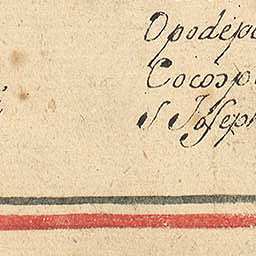 Opodepo
Cocosp
S Joseph